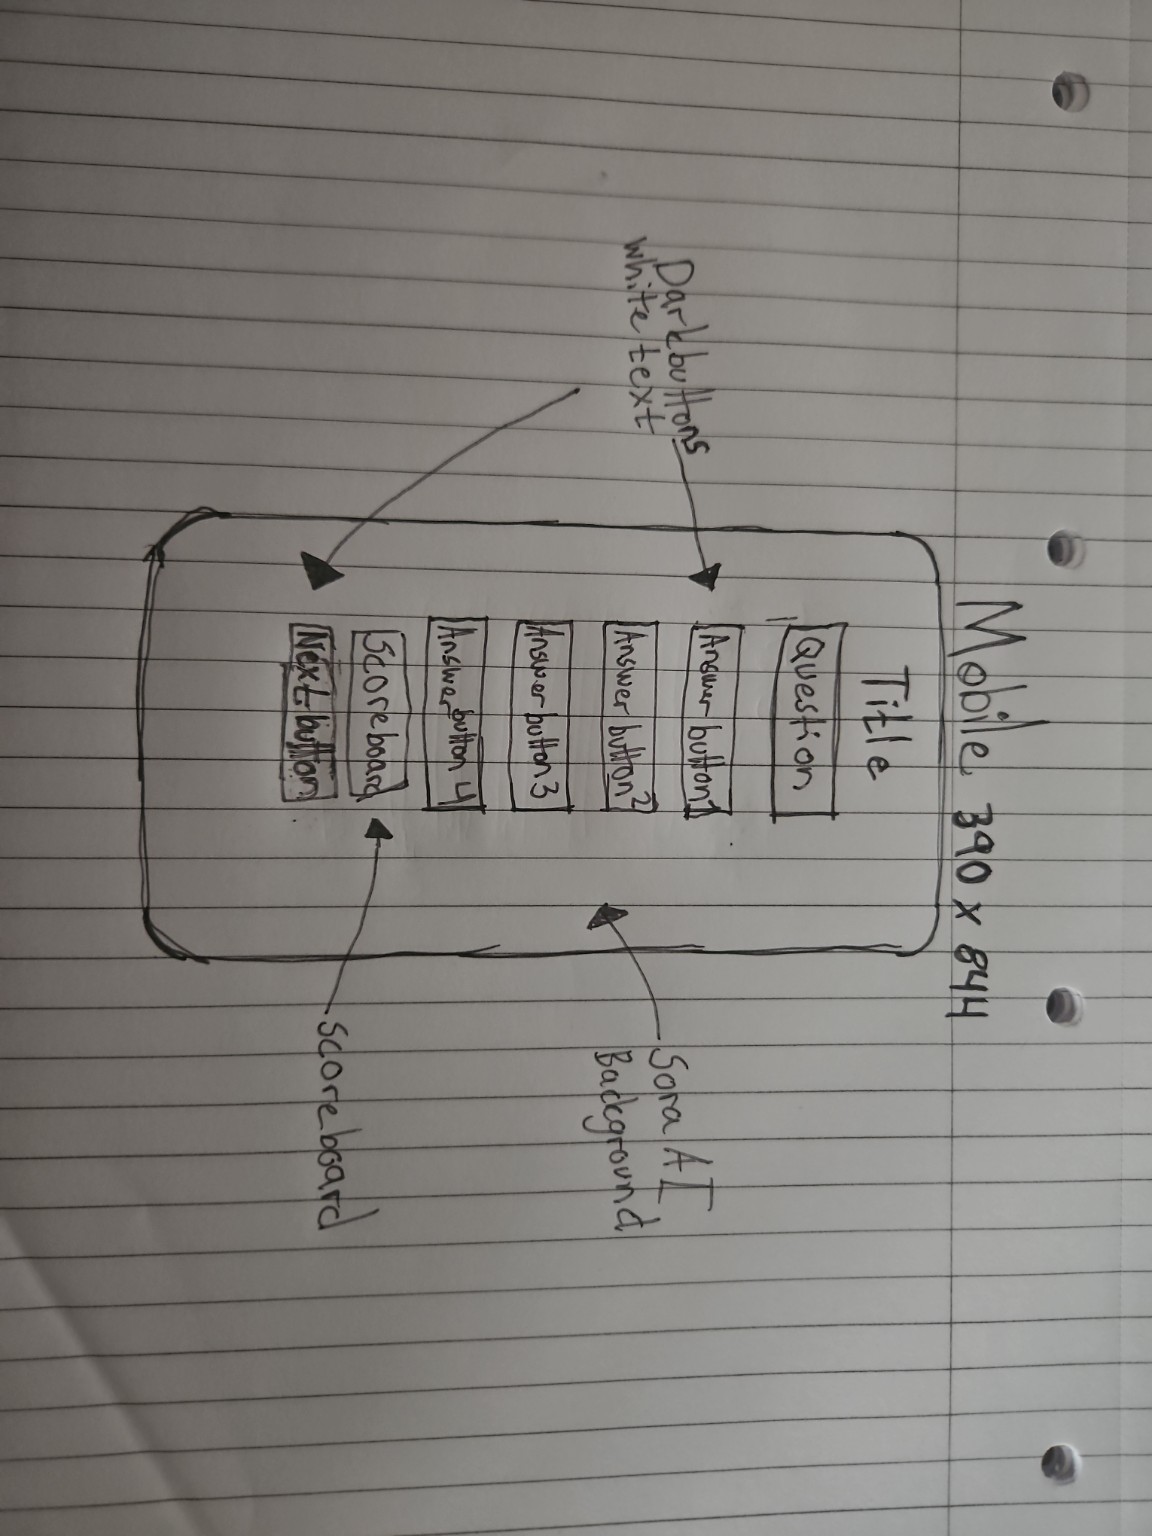 Mobile 390 x 844
Title
Question
Answer button 1
Answer button 2
Answer button 3
Answer button 4
Scoreboard
Next button
Dark buttons
white text
Sora AI
Background
Scoreboard